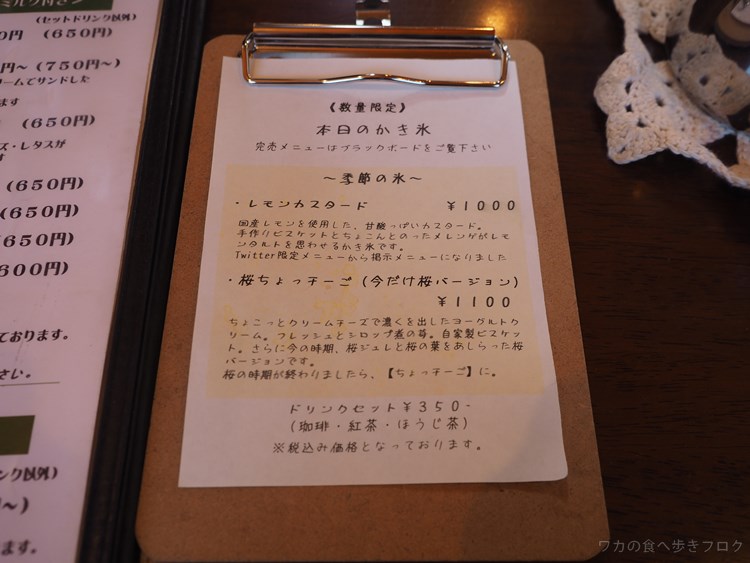 ミルク付き)
(セットドリンク以外)
0円 (650円)
0円〜 (750円〜)
ームでサンドした
ます
(650円)
ズ・レタスが
す
(650円)
(650円)
(650円)
(600円)
ております。
さい。
ンク以外)
〜)
ます。
《数量限定》
本日のかき氷
完売メニューはブラックボードをご覧下さい
〜季節の氷〜
・レモンカスタード ￥1000
国産レモンを使用した、甘酸っぱいカスタード。
手作りビスケットとちょこんとのったメレンゲがレモ
ンタルトを思わせるかき氷です。
Twitter限定メニューから掲示メニューになりました
・桜ちょっチーゴ（今だけ桜バージョン）
￥1100
ちょこっとクリームチーズで濃くを出したヨーグルトク
リーム。フレッシュとシロップ煮の苺。自家製ビスケッ
ト。さらに今の時期、桜ジュレと桜の葉をあしらった桜
バージョンです。
桜の時期が終わりましたら、【ちょっチーゴ】に。
ドリンクセット￥350-
（珈琲・紅茶・ほうじ茶）
※税込み価格となっております。
ワカの食べ歩きブログ